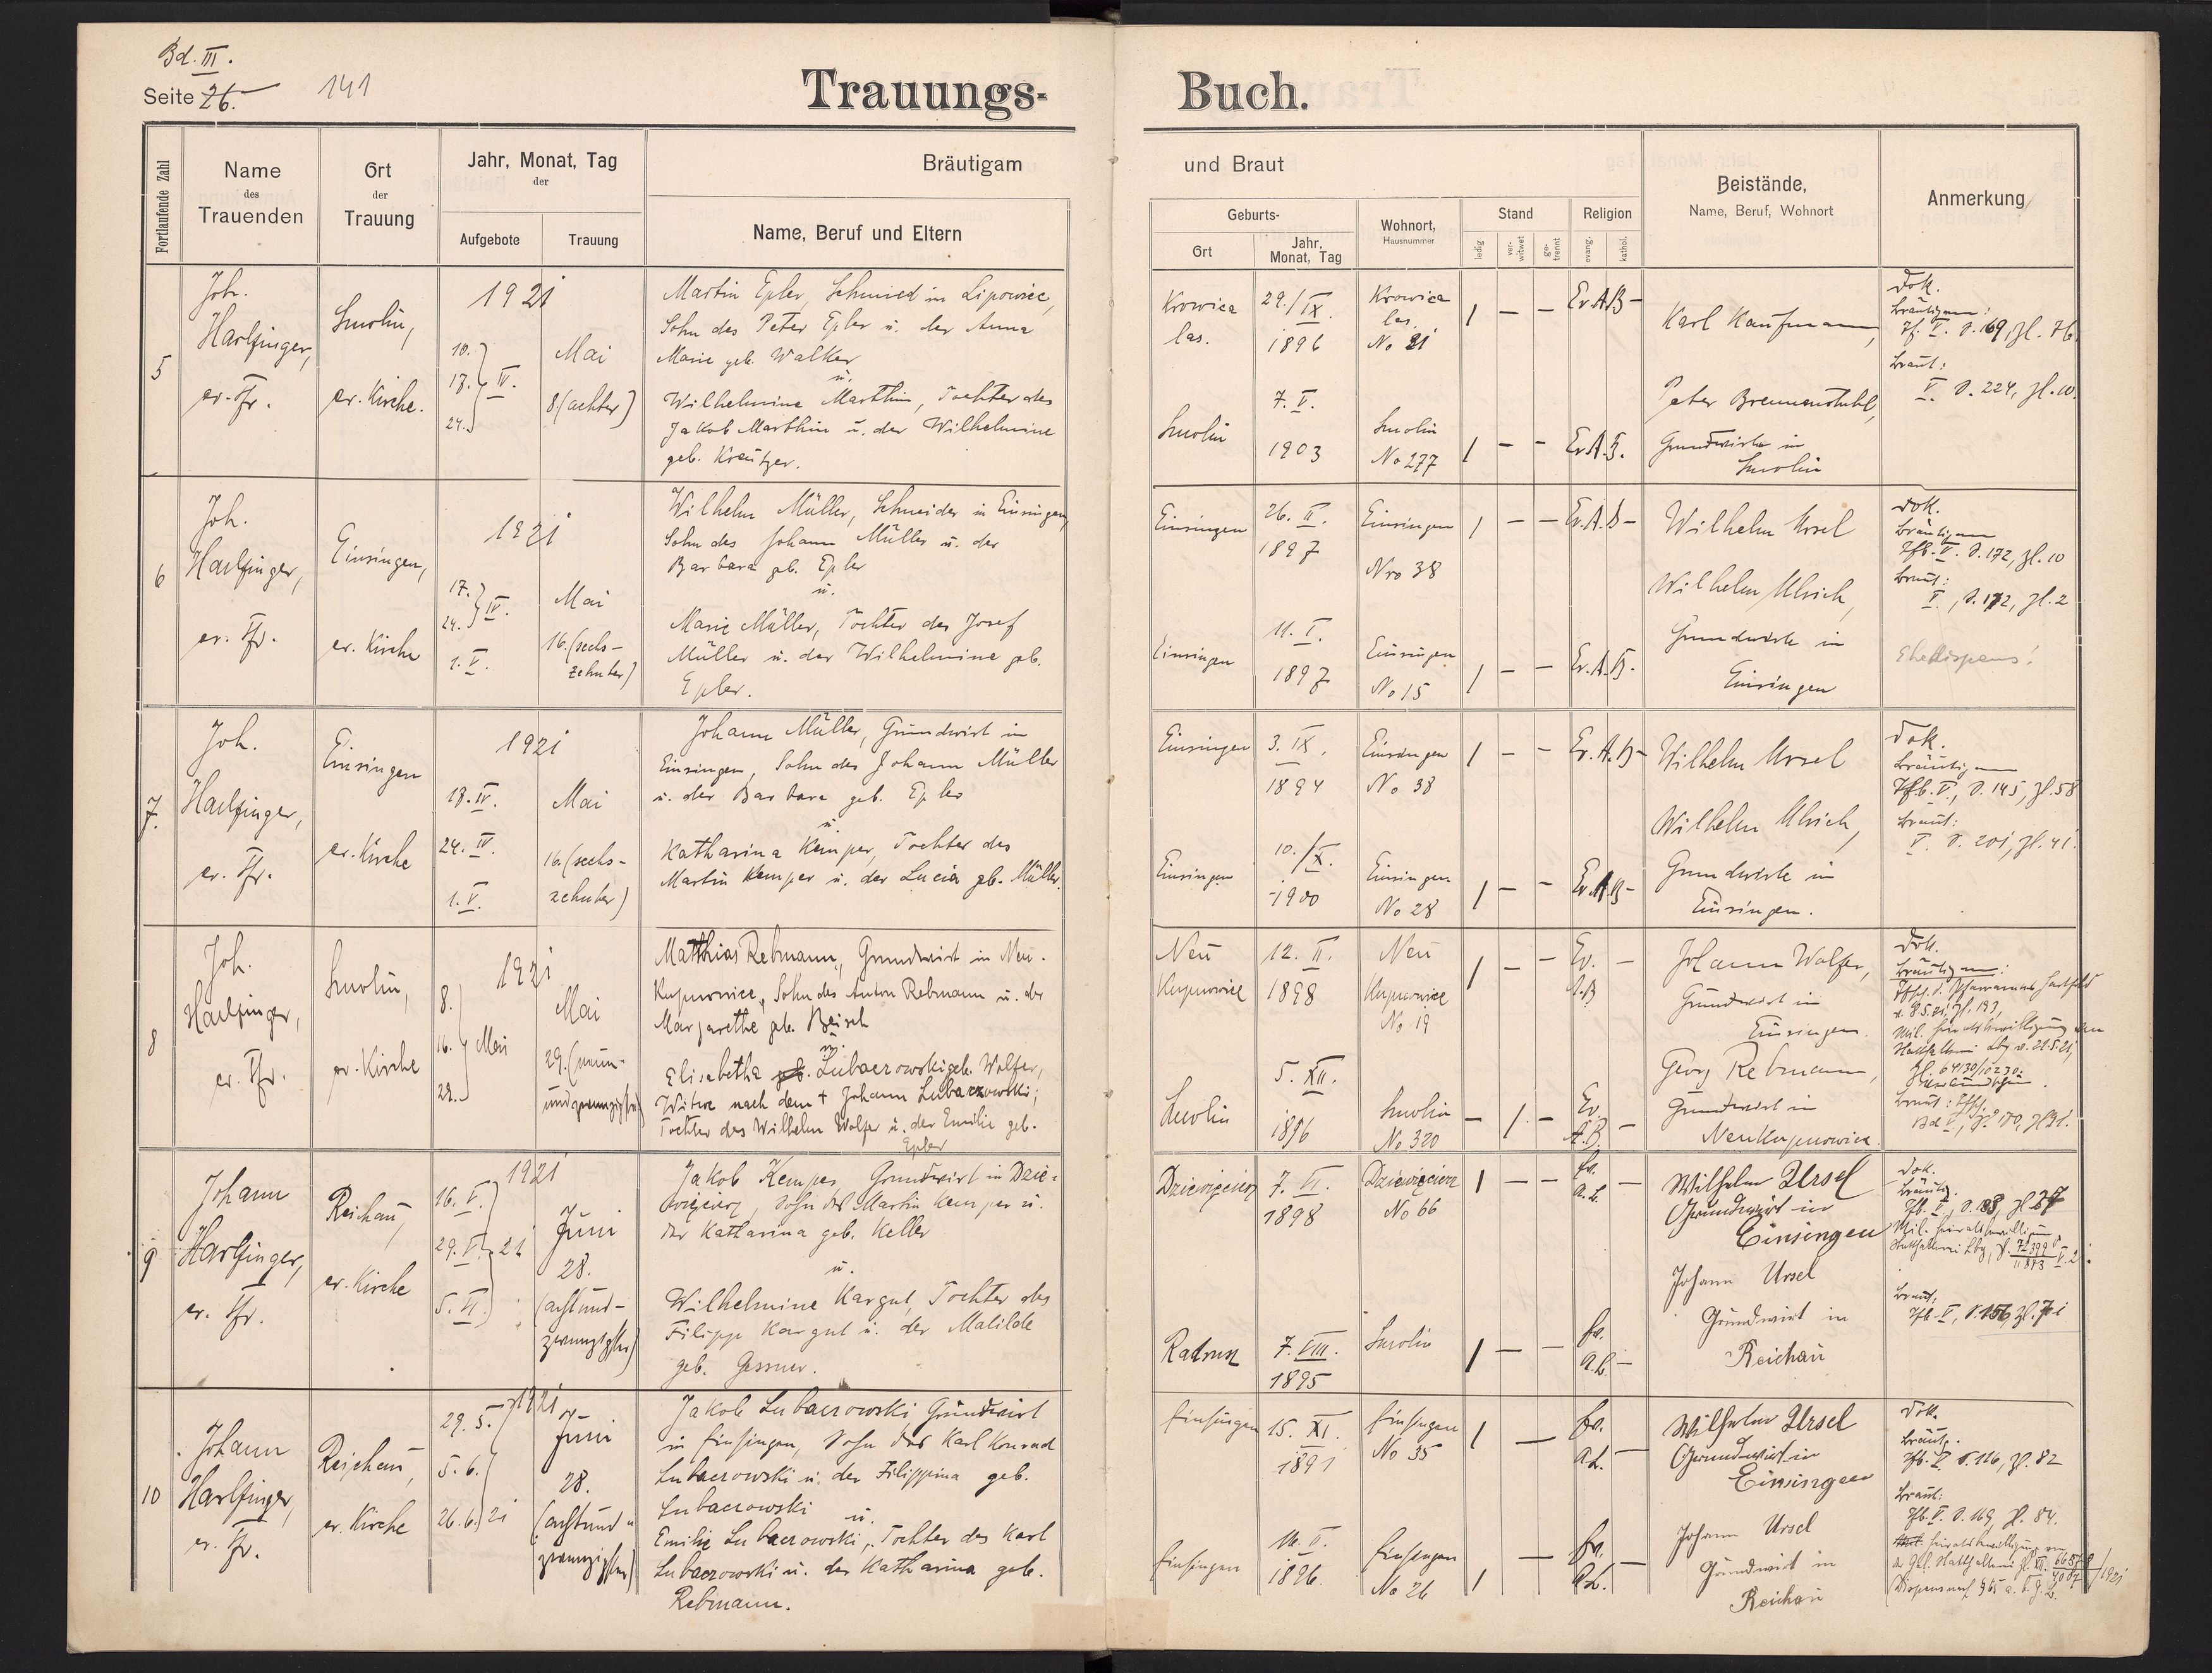 Bd. III.
Seite 26.
141
Trauungs-Buch.
Fortlaufende Zahl
Name des Trauenden
Ort der Trauung
Jahr, Monat, Tag der
Aufgebote
Trauung
Bräutigam und Braut
Name, Beruf und Eltern
Geburts-
Ort
Jahr. Monat, Tag
Wohnort, Hausnummer
Stand
ledig
ver-witwet
ge-trennt
Religion
evang.
kathol.
Beistände,
Name, Beruf, Wohnort
Anmerkung
5
Joh.
Harlfinger,
ev. Pfr.
Smolin,
ev. Kirche.
1921
10.
17. IV.
24.
Mai
8. (achter)
Martin Epler, Schmied in Lipowiec,
Sohn des Peter Epler u. der Anna
Marie geb. Walker
u.
Wilhelmine Marthin, Tochter des
Jakob Marthin u. der Wilhelmine
geb. Kreutzer.
Krowica
las.
29./IX.
1896
Krowica
las.
No 21
1 — — Ev.A.B —
Smolin
7. V.
1903
Smolin
No 277
1 — — Ev.A.B.
Karl Kaufmann,
Peter Brennenstuhl,
Grundwirte in
Smolin
Dok.
Bräutigam:
Tf. V. S. 169, Zl. 76.
Braut:
V. S. 224, Zl. 10.
6
Joh.
Harlfinger,
ev. Pfr.
Einsingen,
ev. Kirche
1921
17.
24. IV.
1. V.
Mai
16. (sechs-
zehnter)
Wilhelm Müller, Schneider in Einsingen,
Sohn des Johann Müller u. der
Barbara geb. Epler
u.
Marie Müller, Tochter des Josef
Müller u. der Wilhelmine geb.
Epler.
Einsingen
26. II.
1897
Einsingen
Nro 38
1 — — Ev.A.B —
Einsingen
11. I.
1897
Einsingen
No 15
1 — — Ev.A.B.
Wilhelm Ursel
Wilhelm Ulrich,
Grundwirte in
Einsingen
Dok.
Bräutigam
Tfb. V. S. 172, Zl. 10
Braut:
V., S. 172, Zl. 2
Ehedispens!
7.
Joh.
Harlfinger,
ev. Pfr.
Einsingen
ev. Kirche
1921
17. IV.
24. IV.
1. V.
Mai
16. (sechs-
zehnter)
Johann Müller, Grundwirt in
Einsingen, Sohn des Johann Müller
u. der Barbara geb. Epler
u.
Katharina Kemper, Tochter des
Martin Kemper u. der Lucia geb. Müller.
Einsingen
3. IX.
1894
Einsingen
No 38
1 — — Ev.A.B —
Einsingen
10./X.
1900
Einsingen
No 28
1 — — Ev.A.B —
Wilhelm Ursel
Wilhelm Ulrich,
Grundwirte in
Einsingen.
Dok.
Bräutigam
Tfb. V., S. 145, Zl. 58
Braut:
V. S. 201, Zl. 41.
8
Joh.
Harlfinger,
ev. Pfr.
Smolin,
ev. Kirche
1921
8.
16. Mai
22.
Mai
29. (neun-
undzwanzigster)
Matthias Rebmann, Grundwirt in Neu-
Kupnowice, Sohn des Anton Rebmann u. der
Margarethe geb. Beisch
u.
Elisabetha Lubaczowski geb. Wolfer,
Witwe nach dem + Johann Lubaczowski;
Tochter des Wilhelm Wolfer u. der Emilie geb.
Epler
Neu
Kupnowice
12. II.
1898
Neu
Kupnowice
No 19
1 — — Ev. —
A.B
Smolin
5. XII.
1896
Smolin
No 320
— 1. — Ev. —
A.B.
Johann Wolfer,
Grundwirt in
Einsingen.
Georg Rebmann,
Grundwirt in
Neu Kupnowice.
Dok.
Bräutigam:
9
Johann
Harlfinger,
ev. Pfr.
Reichau,
ev. Kirche
1921
16. V.
29. V. 21
5. VI.
Juni
28.
(achtund-
zwanzigster)
Jakob Kemper, Grundwirt in Dzie-
więcierz, Sohn des Martin Kemper u.
der Katharina geb. Keller
u.
Wilhelmine Kargul, Tochter des
Filipp Kargul u. der Matilde
geb. Gessner.
Dziewięcierz
7. VI.
1898
Dziewięcierz
No 66
1 — — Ev. —
A.B.
Radruż
7. VIII.
1895
Smolin
1 — — Ev.
A.B. —
Wilhelm Ursel
Grundwirt in
Einsingen
Johann Ursel
Grundwirt in
Reichau
Dok.
Bräutig.
Braut:
10
Johann
Harlfinger,
ev. Pfr.
Reichau,
ev. Kirche
1921
29. 5.
5. 6.
26. 6. 21
Juni
28.
(achtund-
zwanzigster)
Jakob Lubaczowski Grundwirt
in Einsingen, Sohn des Karl Konrad
Lubaczowski u. der Filippina geb.
Lubaczowski
u.
Emilie Lubaczowski, Tochter des Karl
Lubaczowski u. der Katharina geb.
Rebmann.
Einsingen
15. XI.
1891
Einsingen
No 35
1 — Ev.
A.B. —
Einsingen
1896.
Einsingen
No 26
1 — Ev.
A.B. —
Wilhelm Ursel
Grundwirt in
Einsingen
Johann Ursel
Grundwirt in
Reichau
Dok.
Bräutg.
Tfb. V. S. 116, Zl. 82
Braut:
Tfb. V. S. 169, Zl. 84.